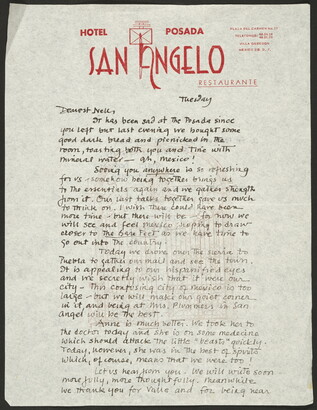 HOTEL POSADA
SAN ANGELO
RESTAURANTE
Tuesday
Dearest Nell,
It has been sad at the Posada since
you left but last evening we bought some
good dark bread and picnicked in the
room, toasting both you and Tine with
mineral water — ah, Mexico!
Seeing you anywhere is so refreshing
for us - somehow being together brings us
to the essentials again and we gather strength
from it. Our last talks together gave us much
to think on. I wish there could have been
more time - but there will be - for now we
will see and feel Mexico hoping to draw
closer to the as we have time to
go out into the country.
Today we drove over the sierra to
Puebla to gather our mail and see the town.
It is appealing to our eyes
and we secretly wish that it were our
city - This confusing city of Mexico is too
large - but we will make our quiet corner
in it and being at Mrs. Plummer's in San
Angel will be the best.
Anne is much better. We took her to
the doctor today and she is on some medicine
which should attack the little "beasts" quickly.
Today, however, she was in the best of spirits
which, of course, means that we were too!
Let us hear from you. We will write soon
more fully, more thoughtfully. Meanwhile
we thank you for Valle and for being near